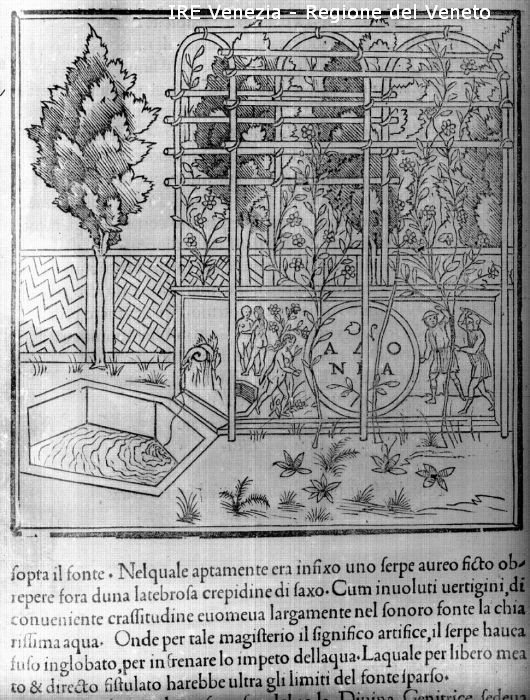 IRE Venezia - Regione del Veneto
A Δ O
N I A
sopra il fonte. Nelquale aptamente era infixo uno serpe aureo ficto ob-
repere fora duna latebrosa crepidine di saxo. Cum inuoluti uertigini, di
conueniente crassitudine euomeua largamente nel sonoro fonte la chia
rissima aqua. Onde per tale magisterio il significo artifice, il serpe hauea
fuso inglobato, per infrenare lo impeto dellaqua. Laquale per libero mea
to & directo fistulato harebbe ultra gli limiti del fonte sparso.
la Diuina Genitrice sedeua